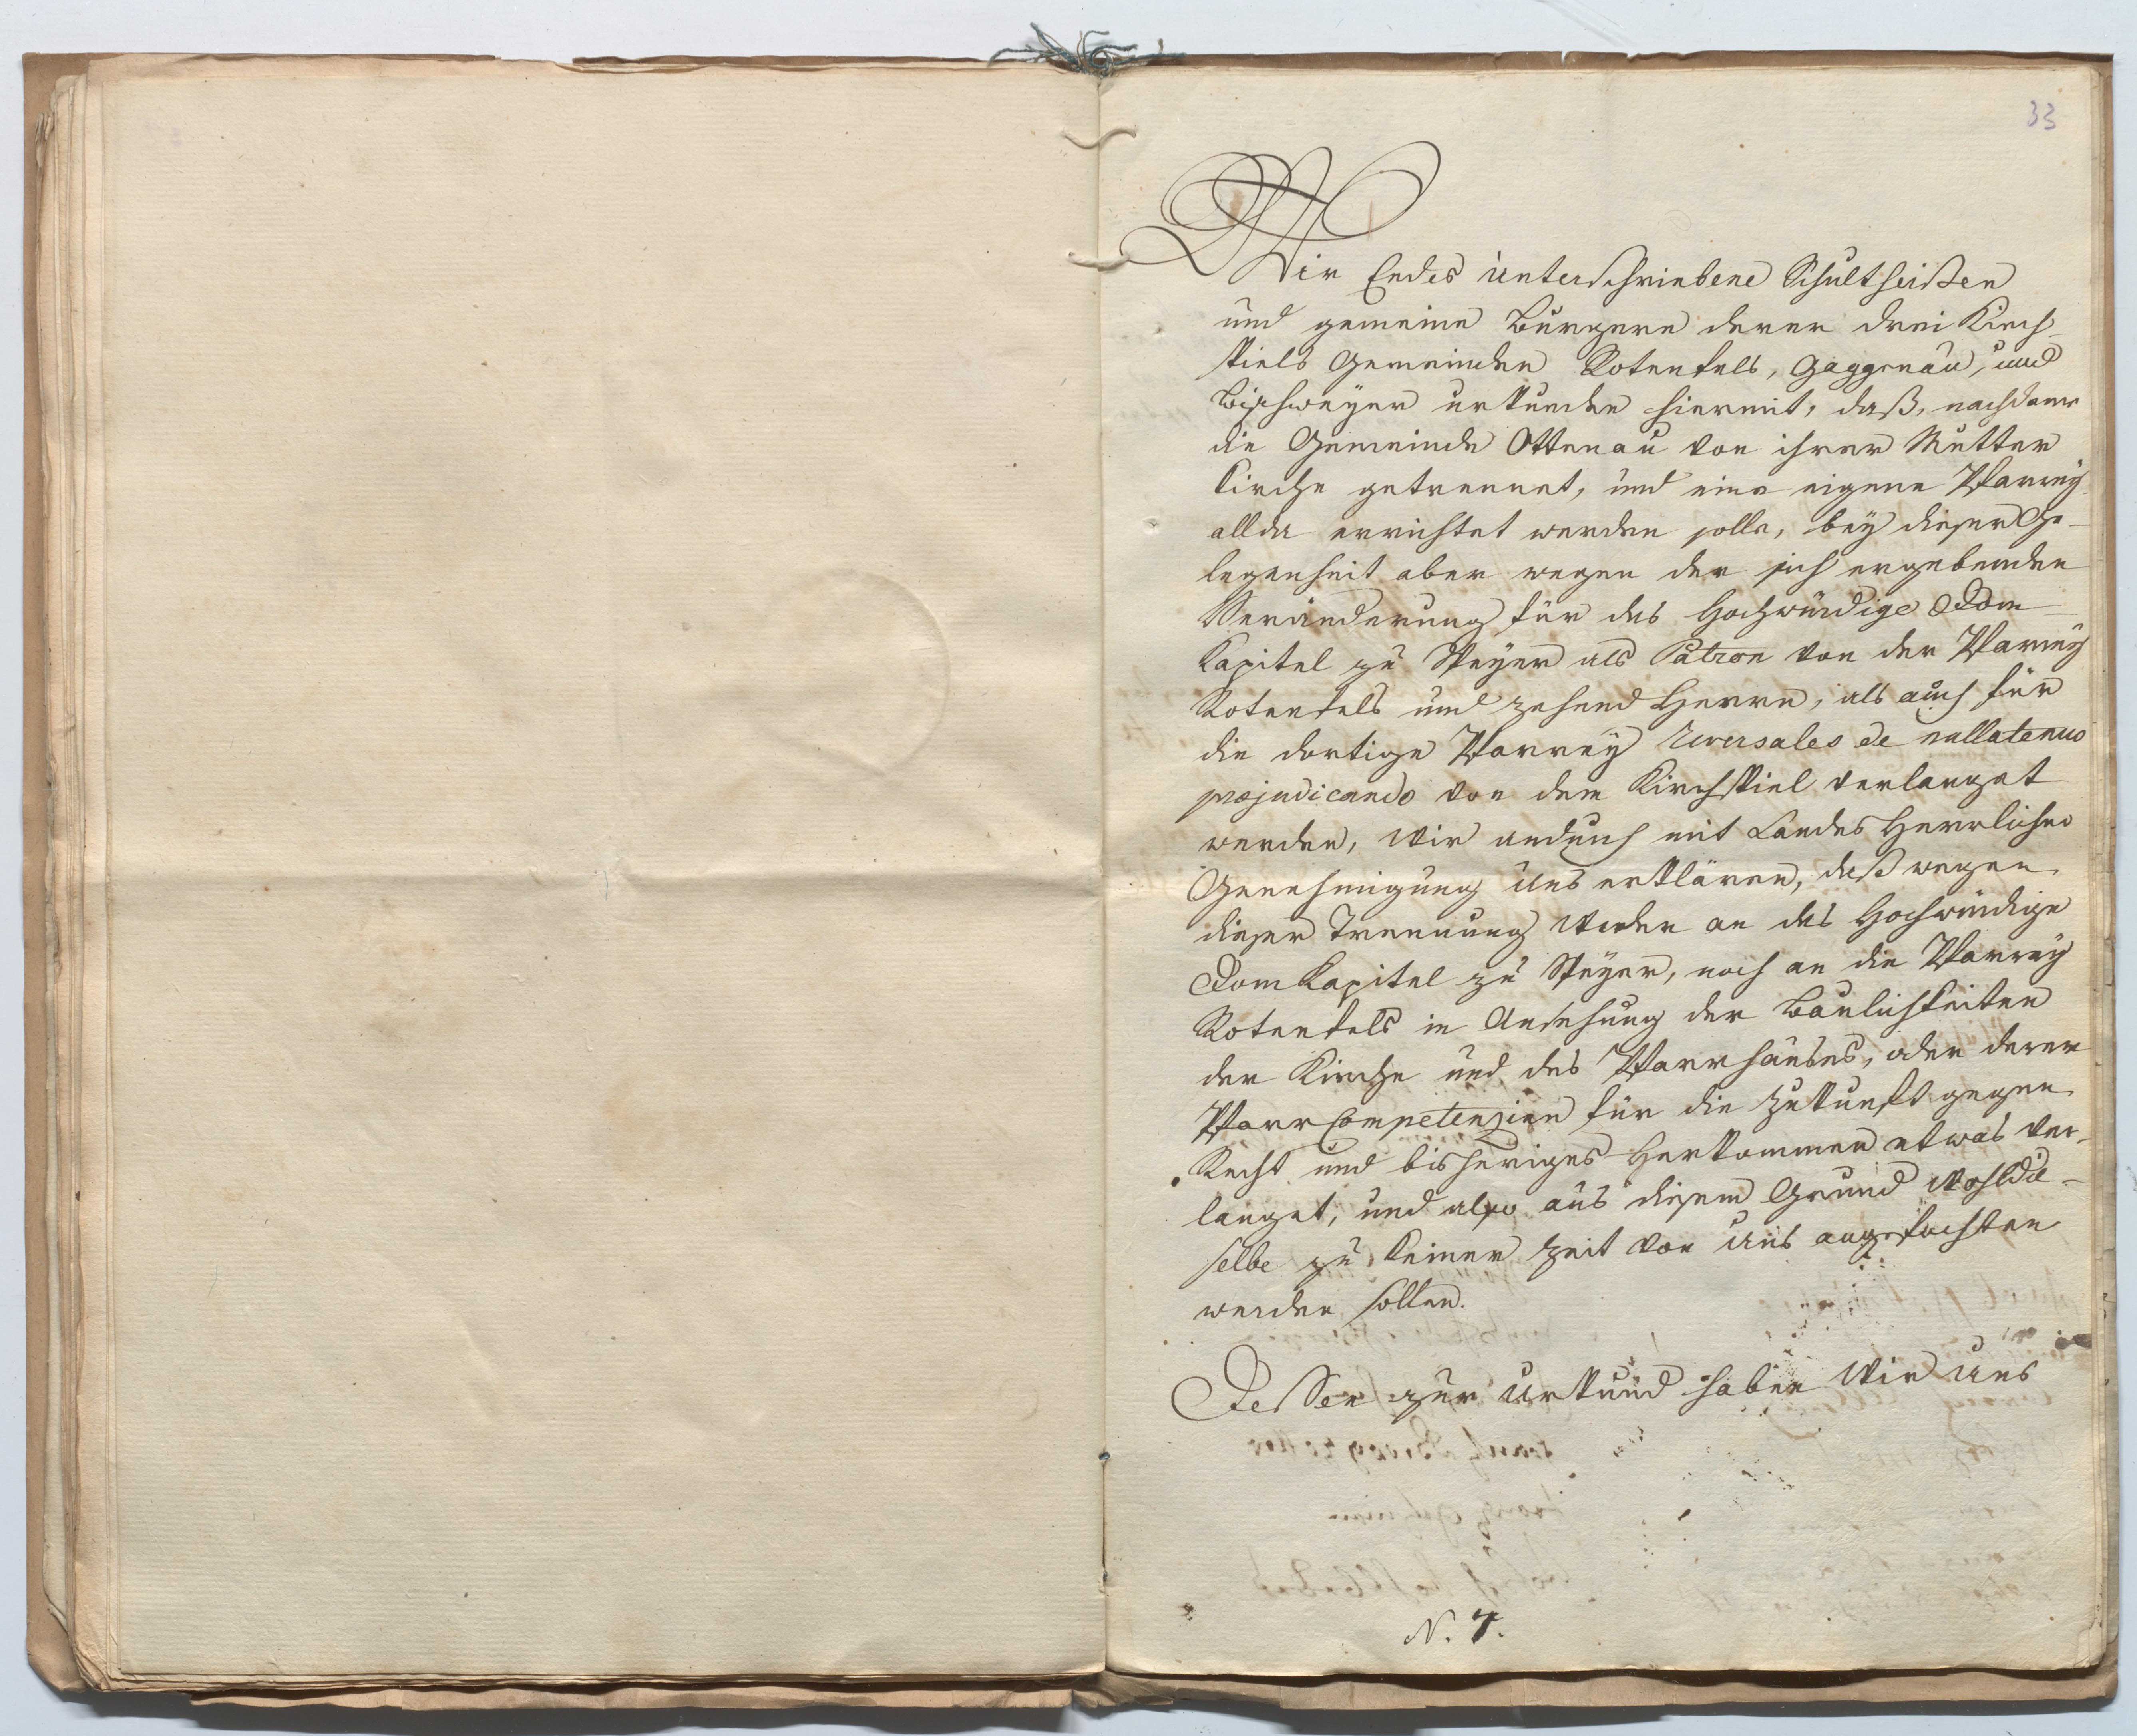 33
Wir Endes unterschriebene Schultheißen
und gemeine Burgere derer drei Kirch-
spiels Gemeinden Rotenfels, Gaggenau, und
Bischweyer urkunden hiermit, daß, nachdeme
die Gemeinde Ottenau von ihrer Mutter
Kirche getrennet, und eine eigene Pfarrey
allda errichtet werden solle, bey dieser Ge-
legenheit aber wegen der sich ergebenden
Veränderung für das Hochwürdige Dom
Kapitel zu Speyer als Patron von der Pfarrey
Rotenfels und Zehend Herrn, als auch für
die dortige Pfarrey Reversales de nullatenus
præjudicando von dem Kirchspiel verlanget
werden, Wir andurch mit Landes Herrlicher
Genehmigung uns erklären, daß wegen
dieser Trennung weder an das Hochwürdige
Dom Kapitel zu Speyer, noch an die Pfarrey
Rotenfels in Ansehung der Baulichkeiten
der Kirche und des Pfarrhauses, oder derer
Pfarr Competenzien für die Zukunft gegen
Recht und bisheriges Herkommen etwas ver-
langet, und also aus diesem Grund Wohldie-
selbe zu keiner Zeit von uns angefochten
werden sollen.
Dessen zur Urkund haben Wir uns
N. 7.